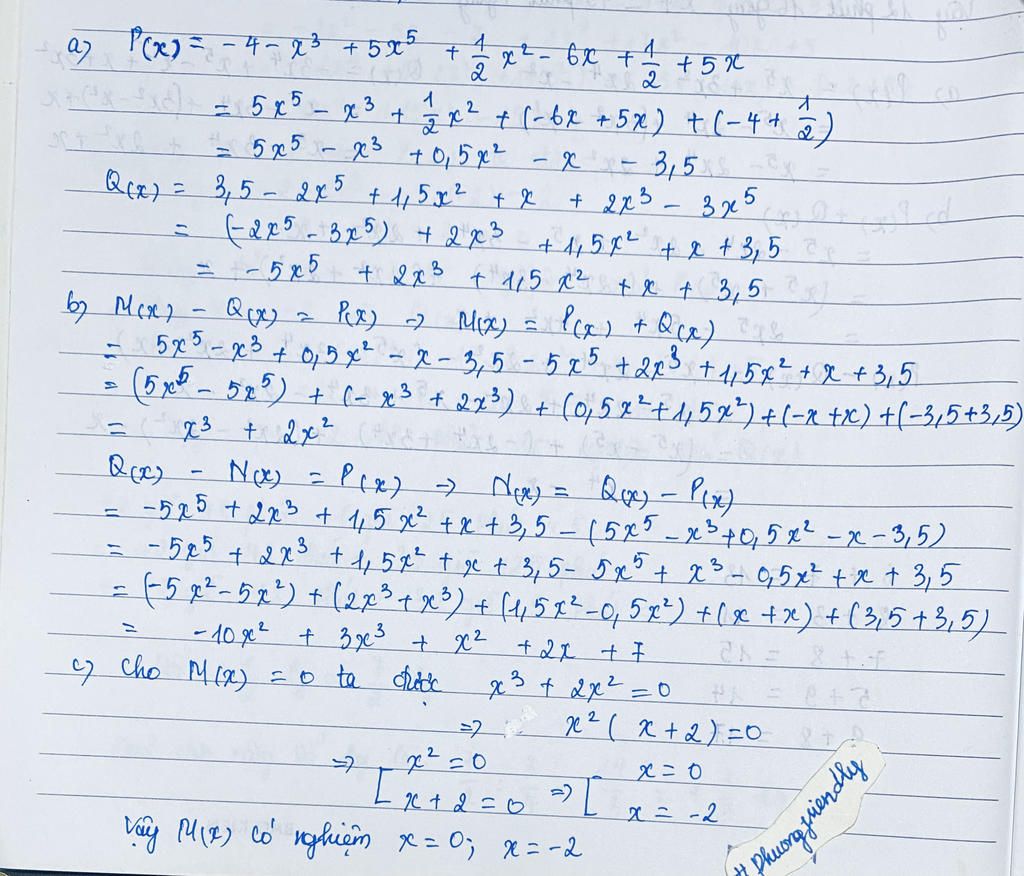 a) P(x) = - 4 - x³ + 5x⁵ + 1/2 x² - 6x + 1/2 + 5x
= 5x⁵ - x³ + 1/2 x² + (-6x + 5x) + (-4 + 1/2)
= 5x⁵ - x³ + 0,5x² - x - 3,5
Q(x) = 3,5 - 2x⁵ + 1,5x² + x + 2x³ - 3x⁵
= (-2x⁵ - 3x⁵) + 2x³ + 1,5x² + x + 3,5
= - 5x⁵ + 2x³ + 1,5x² + x + 3,5
b) M(x) - Q(x) = P(x) → M(x) = P(x) + Q(x)
= 5x⁵ - x³ + 0,5x² - x - 3,5 - 5x⁵ + 2x³ + 1,5x² + x + 3,5
= (5x⁵ - 5x⁵) + (- x³ + 2x³) + (0,5x² + 1,5x²) + (-x + x) + (-3,5 + 3,5)
= x³ + 2x²
Q(x) - N(x) = P(x) → N(x) = Q(x) - P(x)
= -5x⁵ + 2x³ + 1,5x² + x + 3,5 - (5x⁵ - x³ + 0,5x² - x - 3,5)
= -5x⁵ + 2x³ + 1,5x² + x + 3,5 - 5x⁵ + x³ - 0,5x² + x + 3,5
= (-5x² - 5x²) + (2x³ + x³) + (1,5x² - 0,5x²) + (x + x) + (3,5 + 3,5)
= -10x² + 3x³ + x² + 2x + 7
c) Cho M(x) = 0 ta được x³ + 2x² = 0
⇒ x² ( x + 2) = 0
⇒ [ x² = 0 ⇒ [ x = 0
x + 2 = 0 x = -2
Vậy M(x) có nghiệm x = 0; x = -2
# Phuongfriendly